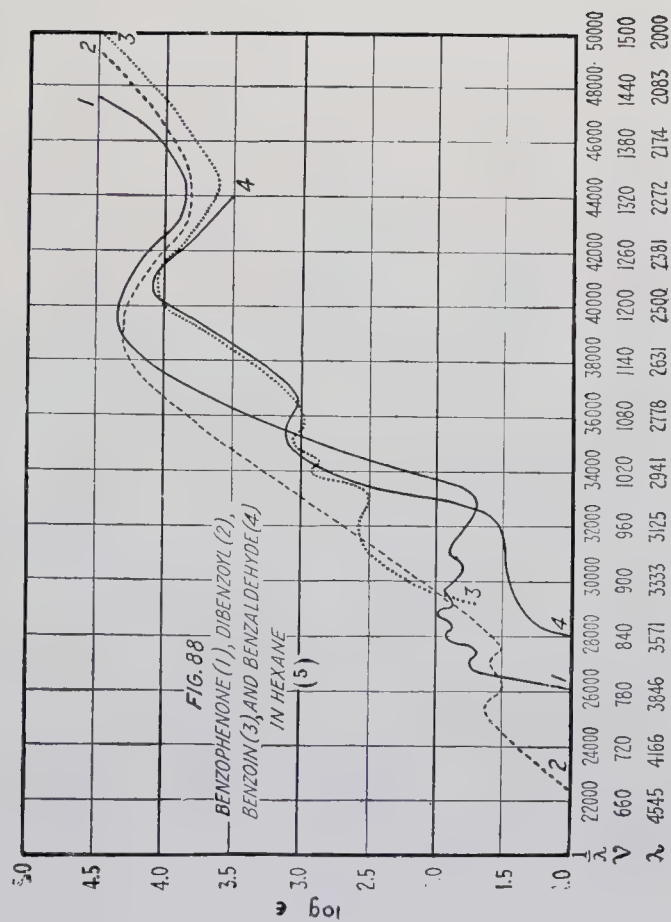 log ε
5.0
4.5
4.0
3.5
3.0
2.5
2.0
1.5
1.0
1
2
3
4
FIG. 88
BENZOPHENONE (1), DIBENZOYL (2),
BENZOIN (3), AND BENZALDEHYDE (4)
IN HEXANE
(5)
2
1
4
3
1/λ 22000 24000 26000 28000 30000 32000 34000 36000 38000 40000 42000 44000 46000 48000 50000
ν 660 720 780 840 900 960 1020 1080 1140 1200 1260 1320 1380 1440 1500
λ 4545 4166 3846 3571 3333 3125 2941 2778 2631 2500 2381 2272 2174 2083 2000